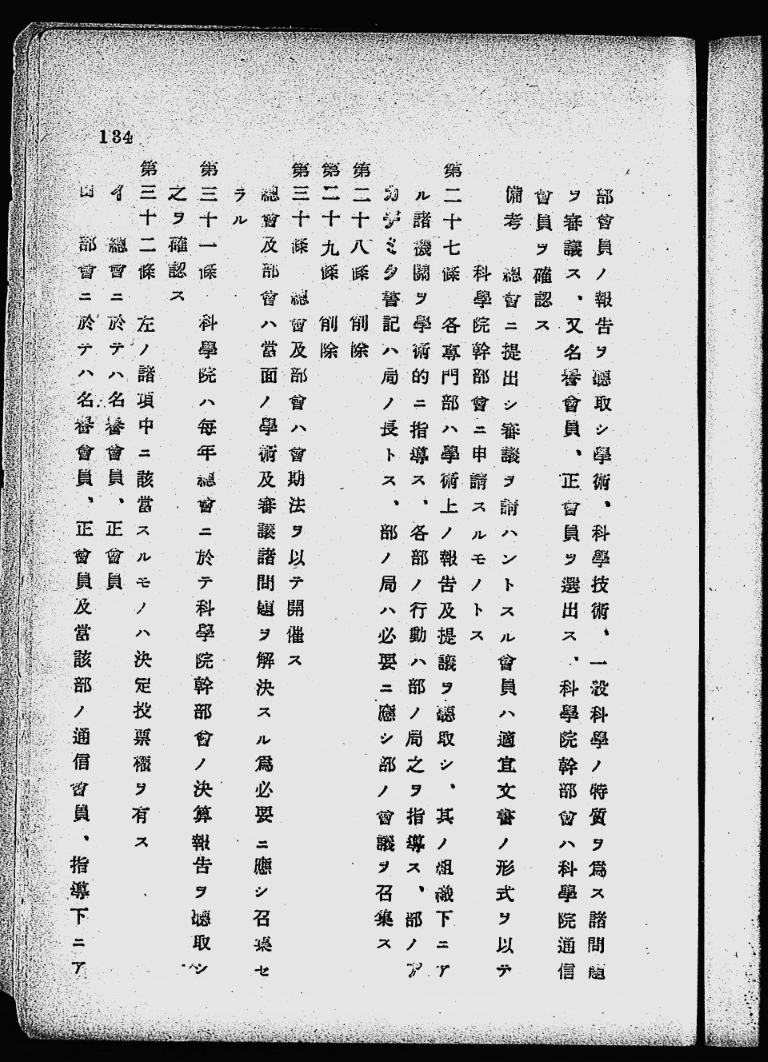 134
部會員ノ報告ヲ聽取シ學術、科學技術、一般科學ノ特質ヲ爲ス諸問題
ヲ審議ス、又名譽會員、正會員ヲ選出ス、科學院幹部會ハ科學院通信
會員ヲ確認ス
備考 總會ニ提出シ審議ヲ請ハントスル會員ハ適宜文書ノ形式ヲ以テ
科學院幹部會ニ申請スルモノトス
第二十七條 各專門部ハ學術上ノ報告及提議ヲ聽取シ、其ノ組織下ニア
ル諸機關ヲ學術的ニ指導ス、各部ノ行動ハ部ノ局之ヲ指導ス、部ノア
カデミク書記ハ局ノ長トス、部ノ局ハ必要ニ應シ部ノ會議ヲ召集ス
第二十八條 削除
第二十九條 削除
第三十條 總會及部會ハ會期法ヲ以テ開催ス
總會及部會ハ當面ノ學術及審議諸問題ヲ解決スル爲必要ニ應シ召集セ
ラル
第三十一條 科學院ハ每年總會ニ於テ科學院幹部會ノ決算報告ヲ聽取シ
之ヲ確認ス
第三十二條 左ノ諸項中ニ該當スルモノハ決定投票權ヲ有ス
イ 總會ニ於テハ名譽會員、正會員
ロ 部會ニ於テハ名譽會員、正會員及當該部ノ通信會員、指導下ニア